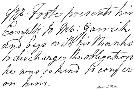 Mr. Foote presents his
compts. to Mrs. Garrick
and begs with his thanks
to discharge the obligations
he was so kind to confer
on him.